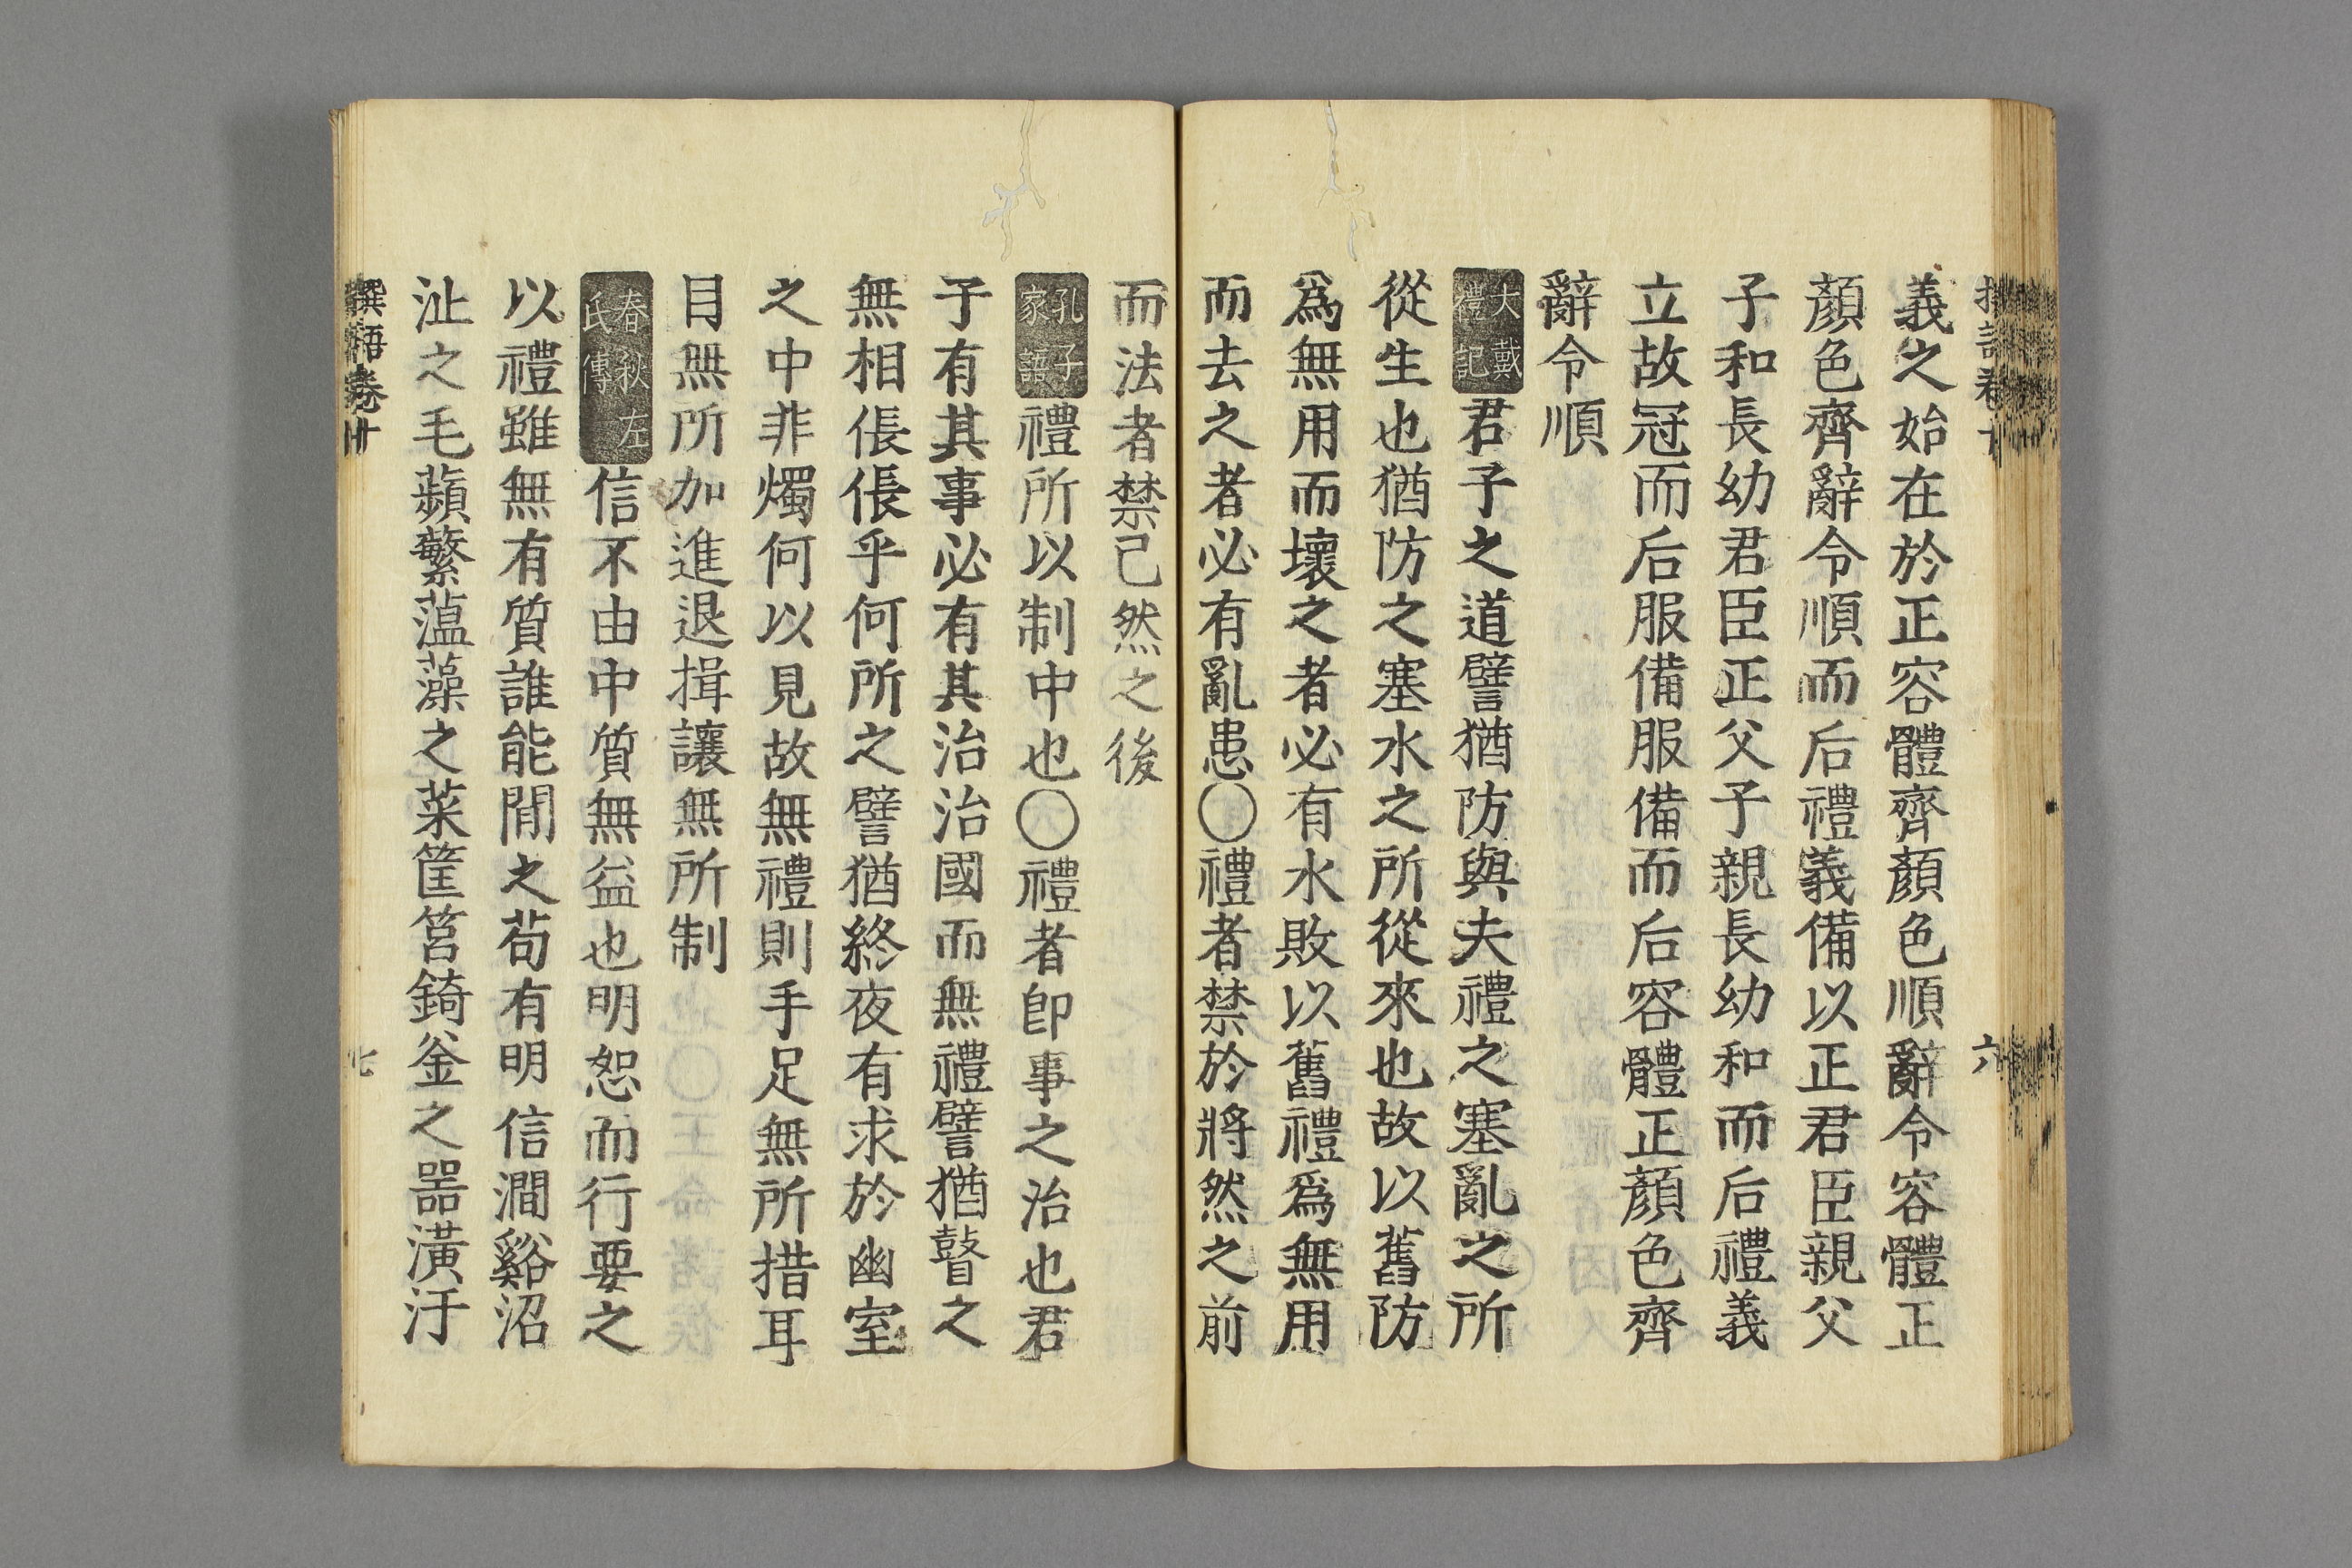 義之始在於正容體齊顏色順辭令容體正
顏色齊辭令順而后禮義備以正君臣親父
子和長幼君臣正父子親長幼和而后禮義
立故冠而后服備服備而后容體正顏色齊
辭令順
大戴禮記君子之道譬猶防與夫禮之塞亂之所
從生也猶防之塞水之所從來也故以舊防
爲無用而壞之者必有水敗以舊禮爲無用
而去之者必有亂患〇禮者禁於將然之前
而法者禁已然之後
孔子家語禮所以制中也〇禮者卽事之治也君
子有其事必有其治治國而無禮譬猶瞽之
無相倀倀乎何所之譬猶終夜有求於幽室
之中非燭何以見故無禮則手足無所措耳
目無所加進退揖讓無所制
春秋左氏傳信不由中質無益也明恕而行要之
以禮雖無有質誰能閒之苟有明信澗谿沼
沚之毛蘋蘩薀藻之菜筐筥錡釜之噐潢汙
卷十
六
七